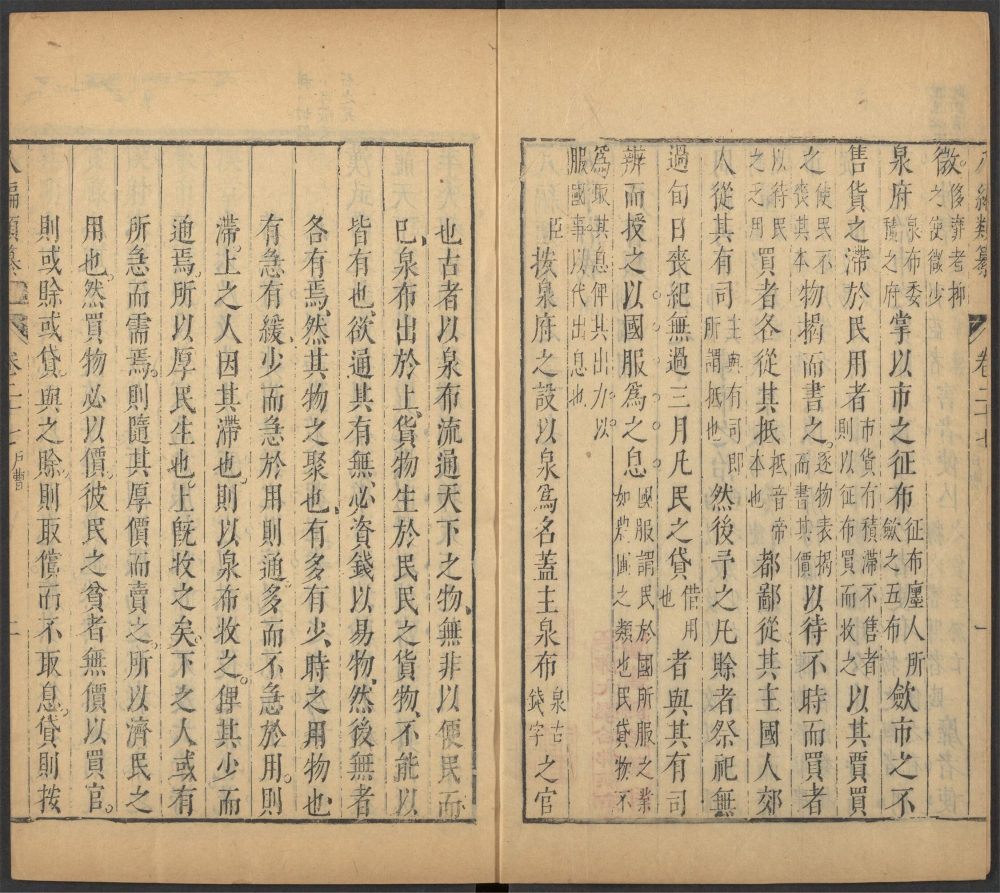 徵侈靡者抑之使徵少
泉府泉布委積之府掌以市之征布征布廛人所歛之五布歛市之不
售貨之滯於民用者市貨有積滯不售者則以征布買而收之以其賈買
之使民不喪其本物揭而書之逐物表揭而書其價以待不時而買者
以待民之乏用買者各從其抵抵音帝本也都鄙從其主國人郊
人從其有司主與有司即所謂抵也然後予之凡賒者祭祀無
過旬日喪紀無過三月凡民之貸借用也者與其有司
辨而授之以國服爲之息國服謂民於國所服之業如農圃之類也民貸物不
爲取其息俾其出力以服國事以代出息也
臣按泉府之設以泉爲名蓋主泉布泉古錢字之官
卷二十七
一
也古者以泉布流通天下之物無非以便民而
巳泉布出於上貨物生於民民之貨物不能以
皆有也欲通其有無必資錢以易物然後無者
各有焉然其物之聚也有多有少時之用物也
有急有緩少而急於用則通多而不急於用則
滯上之人因其滯也則以泉布收之俾其少而
通焉所以厚民生也上旣收之矣下之人或有
所急而需焉則隨其厚價而賣之所以濟民之
用也然買物必以價彼民之貧者無價以買官
則或賒或貸與之賒則取償而不取息貸則按
八編類纂
卷二十七
戶曹
二